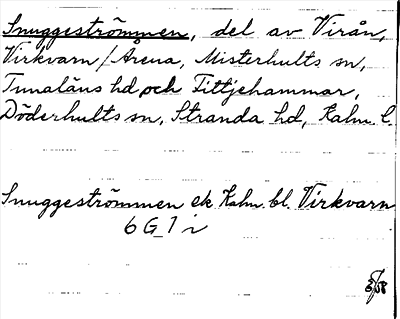 Snuggeströmmen, del av Virån,
Virkvarn/Årena, Misterhults sn,
Tunaläns hd och Fittjehammar,
Döderhults sn, Stranda hd, Kalm. l.
Snuggeströmmen ek Kalm. bl. Virkvarn
6 G 1 i